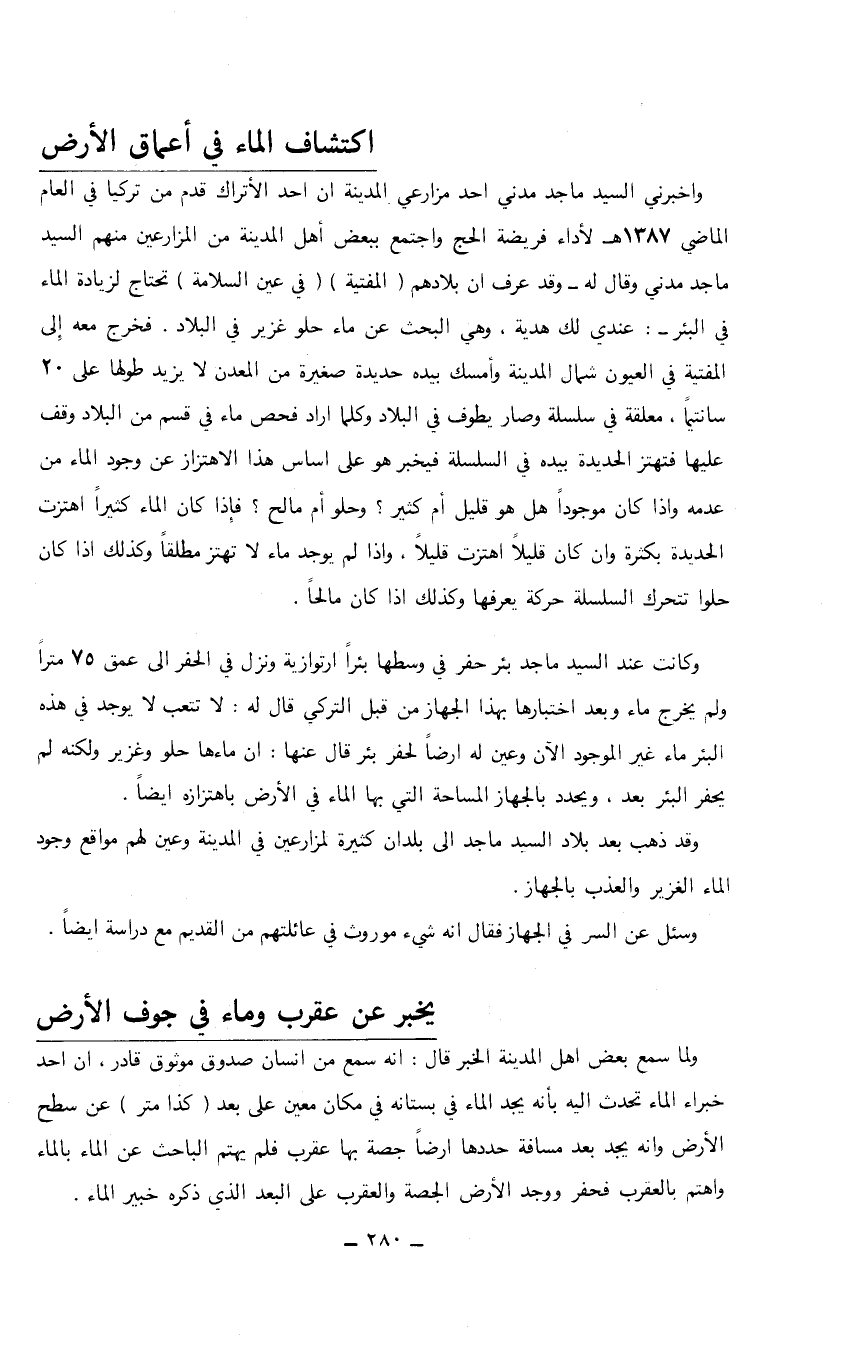 اكتشاف الماء في أعماق الأرض
واخبرني السيد ماجد مدني احد مزارعي المدينة ان احد الأتراك قدم من تركيا في العام
الماضي ١٣٨٧هـ لأداء فريضة الحج واجتمع ببعض أهل المدينة من المزارعين منهم السيد
ماجد مدني وقال له ــ وقد عرف ان بلادهم ( المفتية ) ( في عين السلامة ) تحتاج لزيادة الماء
في البئر ــ : عندي لك هدية ، وهي البحث عن ماء حلو غزير في البلاد . فخرج معه إلى
المفتية في العيون شمال المدينة وأمسك بيده حديدة صغيرة من المعدن لا يزيد طولها على ٢٠
سانتيماً ، معلقة في سلسلة وصار يطوف في البلاد وكلما اراد فحص ماء في قسم من البلاد وقف
عليها فتهتز الحديدة بيده في السلسلة فيخبر هو على اساس هذا الاهتزاز عن وجود الماء من
عدمه واذا كان موجوداً هل هو قليل أم كثير ؟ وحلو أم مالح ؟ فإذا كان الماء كثيراً اهتزت
الحديدة بكثرة وان كان قليلاً اهتزت قليلاً ، واذا لم يوجد ماء لا تهتز مطلقاً وكذلك اذا كان
حلوا تتحرك السلسلة حركة يعرفها وكذلك اذا كان مالحاً .
وكانت عند السيد ماجد بئر حفر في وسطها بئراً ارتوازية ونزل في الحفر الى عمق ٧٥ متراً
ولم يخرج ماء وبعد اختبارها بهذا الجهاز من قبل التركي قال له : لا تتعب لا يوجد في هذه
البئر ماء غير الموجود الآن وعين له ارضاً لحفر بئر قال عنها : ان ماءها حلو وغزير ولكنه لم
يحفر البئر بعد ، ويحدد بالجهاز المساحة التي بها الماء في الأرض باهتزازه ايضاً .
وقد ذهب بعد بلاد السيد ماجد الى بلدان كثيرة لمزارعين في المدينة وعين لهم مواقع وجود
الماء الغزير والعذب بالجهاز .
وسئل عن السر في الجهاز فقال انه شيء موروث في عائلتهم من القديم مع دراسة ايضاً .
يخبر عن عقرب وماء في جوف الأرض
ولما سمع بعض اهل المدينة الخبر قال : انه سمع من انسان صدوق موثوق قادر ، ان احد
خبراء الماء تحدث اليه بأنه يجد الماء في بستانه في مكان معين على بعد ( كذا متر ) عن سطح
الأرض وانه يجد بعد مسافة حددها ارضاً جصة بها عقرب فلم يهتم الباحث عن الماء بالماء
واهتم بالعقرب فحفر ووجد الأرض الجصة والعقرب على البعد الذي ذكره خبير الماء .
ــ ٢٨٠ ــ